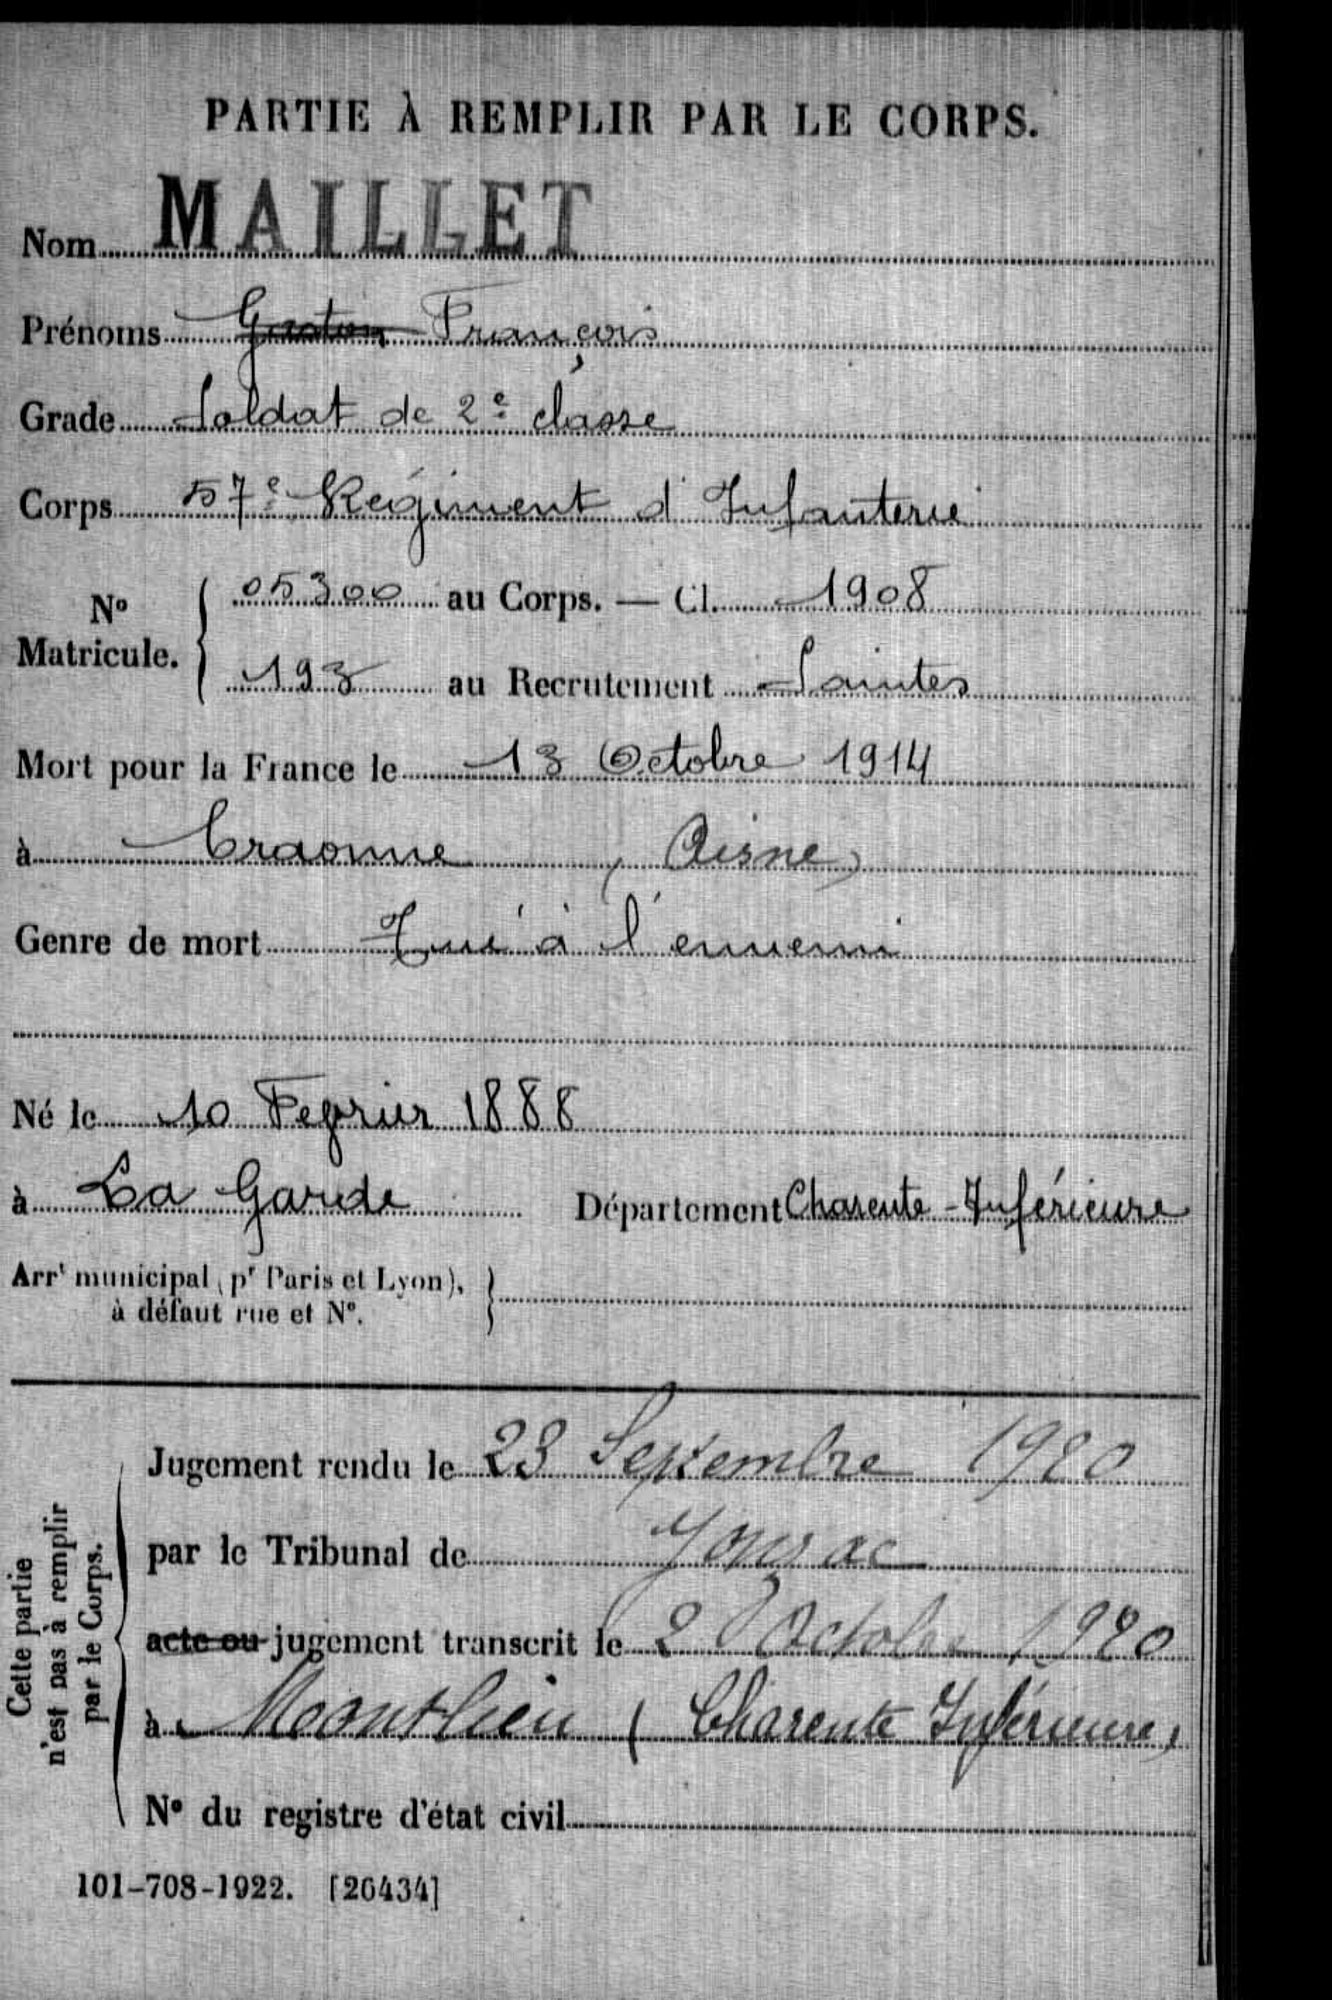 PARTIE À REMPLIR PAR LE CORPS.
Nom MAILLET
Prénoms Gaston François
Grade Soldat de 2e classe
Corps 57e Régiment d'Infanterie
No Matricule. 05300 au Corps. — Cl. 1908
193 au Recrutement Saintes
Mort pour la France le 13 Octobre 1914
à Craonne (Aisne)
Genre de mort Tué à l'ennemi
Né le 10 Fevrier 1888
à La Garde Département Charente-Inférieure
Arrt municipal (pr Paris et Lyon),
à défaut rue et No.
Cette partie
n'est pas à remplir
par le Corps.
Jugement rendu le 23 Septembre 1920
par le Tribunal de Jonzac
acte ou jugement transcrit le 2 Octobre 1920
à Montlieu (Charente Inférieure)
No du registre d'état civil
101-708-1922. [26434]